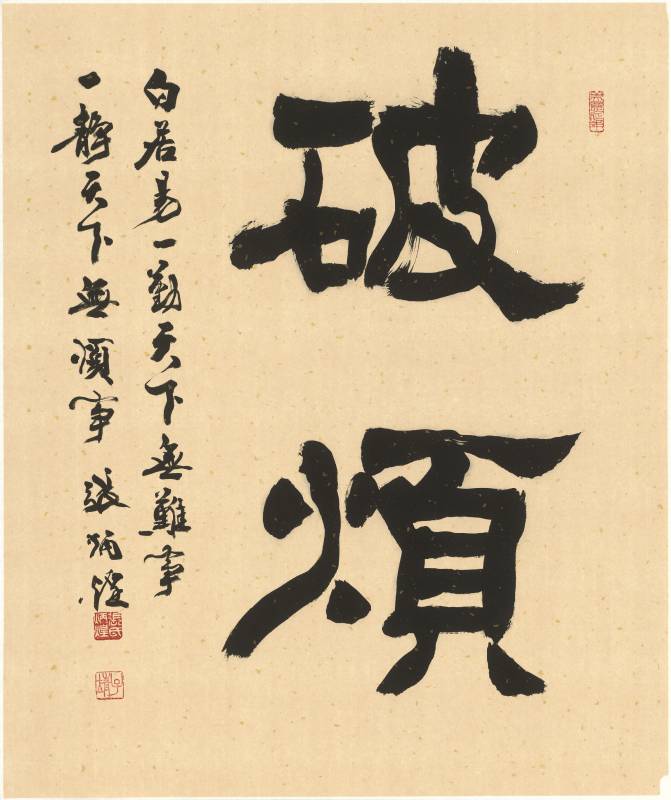 破
煩
白居易一勤天下無難事
一靜天下無煩事 張炳煌
張氏炳煌